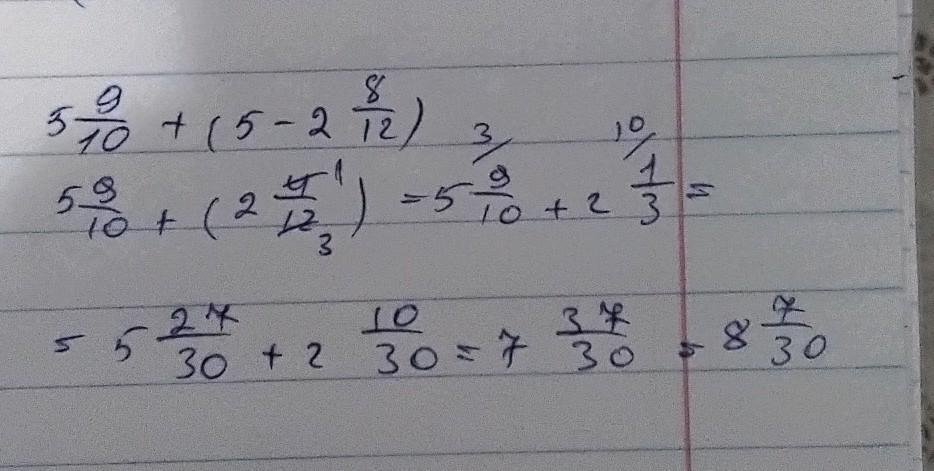 5 9/10 + (5 - 2 8/12)
5 9/10 + (2 4/12 1/3) = 5 9/10 3/ + 2 1/3 10/ =
= 5 27/30 + 2 10/30 = 7 37/30 = 8 7/30